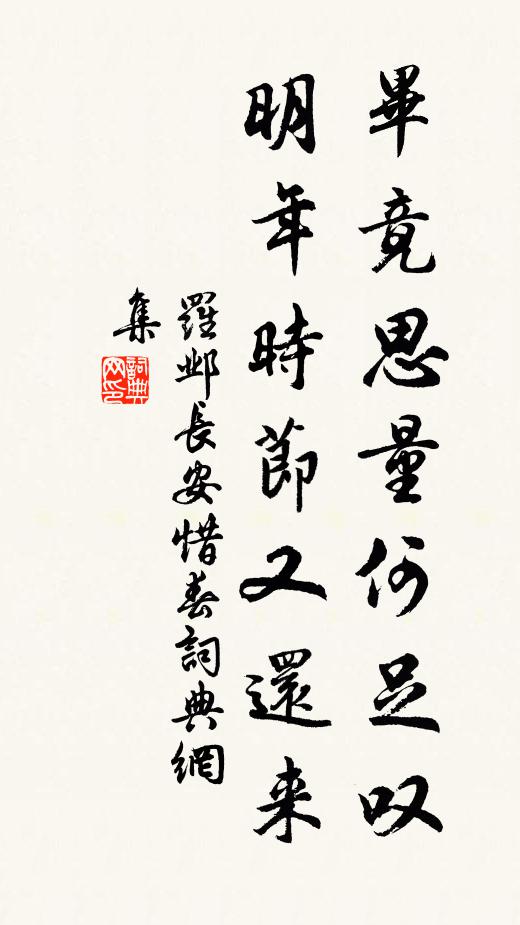 畢竟思量何足叹
明年時節又還来
羅邺長安惜春詞典網
集
詞典網印